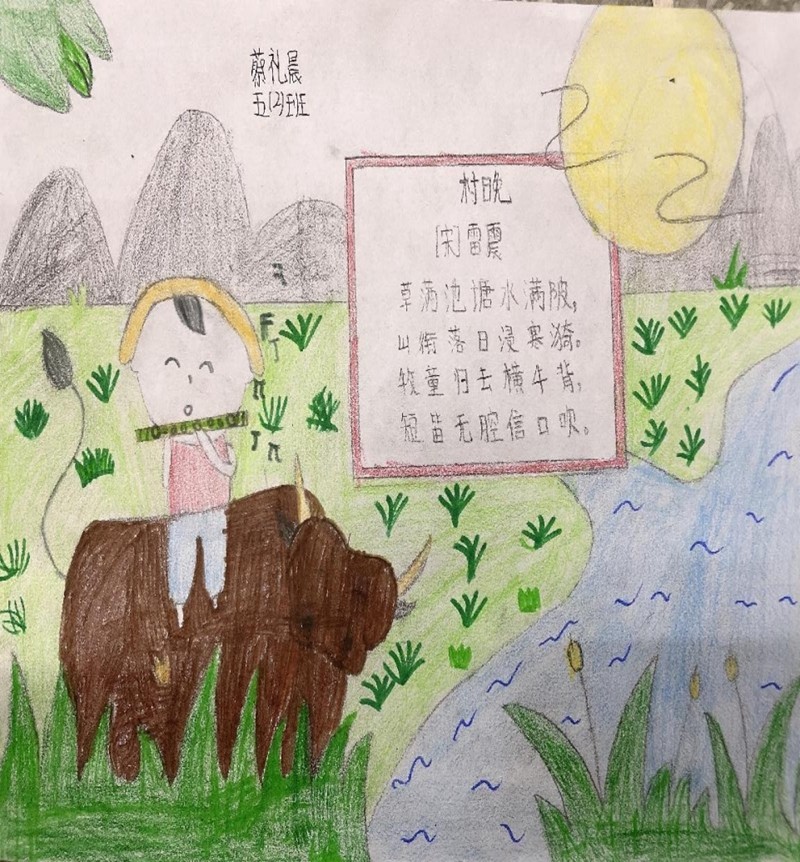 蔡礼晨
五(2)班
村晚
[宋]雷震
草满池塘水满陂，
山衔落日浸寒漪。
牧童归去横牛背，
短笛无腔信口吹。